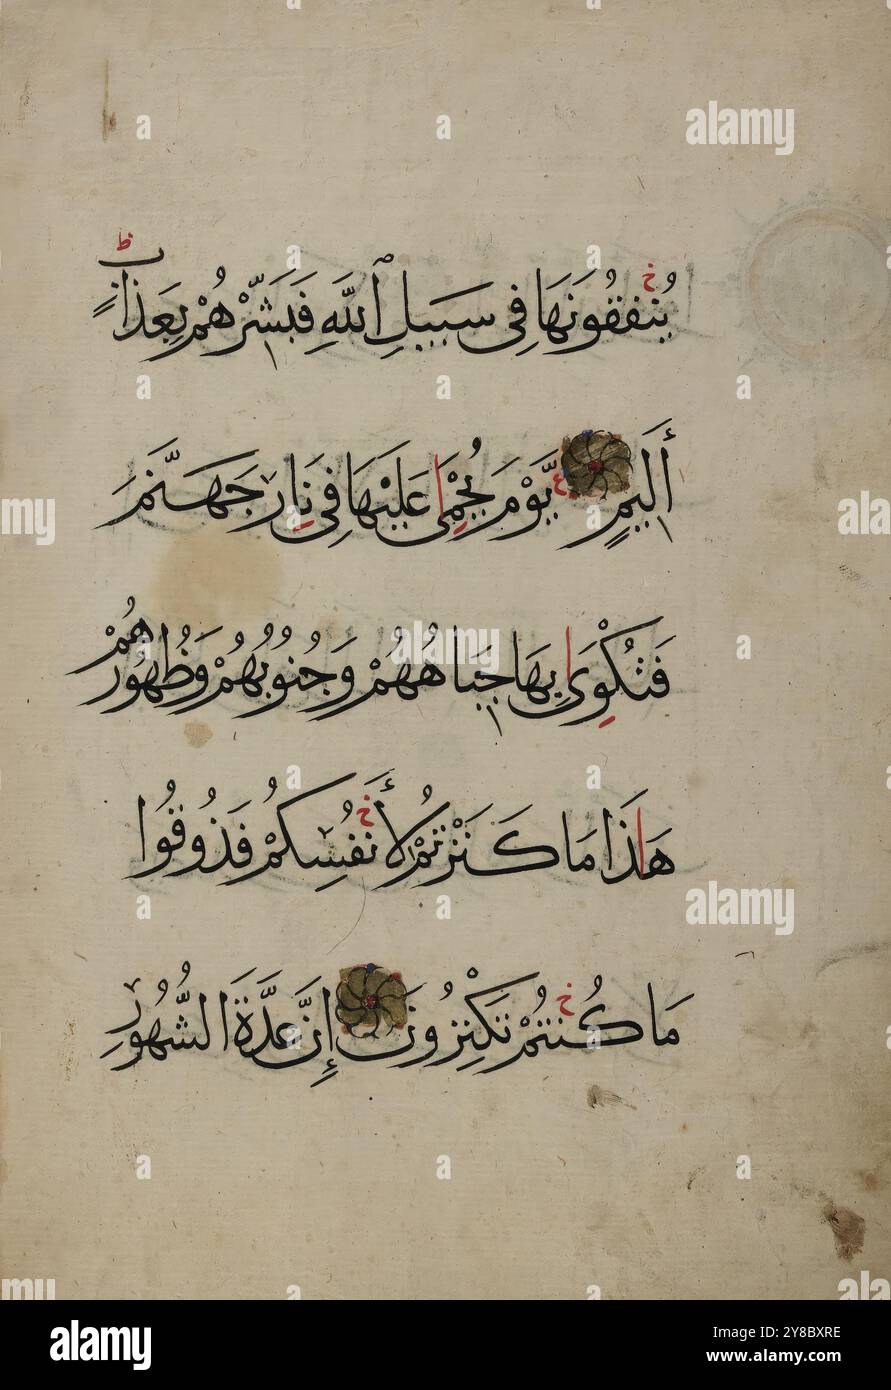 يُنفِقُونَهَا فِي سَبِيلِ ٱللَّهِ فَبَشِّرْهُمْ بِعَذَابٍ
أَلِيمٍ يَّوْمَ يُحْمَى عَلَيْهَا فِي نَارِ جَهَنَّمَ
فَتُكْوَى بِهَا جِبَاهُهُمْ وَجُنُوبُهُمْ وَظُهُورُهُمْ
هَاذَا مَا كَنَزْتُمْ لِأَنفُسِكُمْ فَذُوقُوا
مَا كُنتُمْ تَكْنِزُونَ إِنَّ عِدَّةَ الشُّهُورِ
a a alamy
a a a
alamy a a
a a alamy
a a a
alamy a a
alamy
Image ID: 2Y8BXRE
www.alamy.com